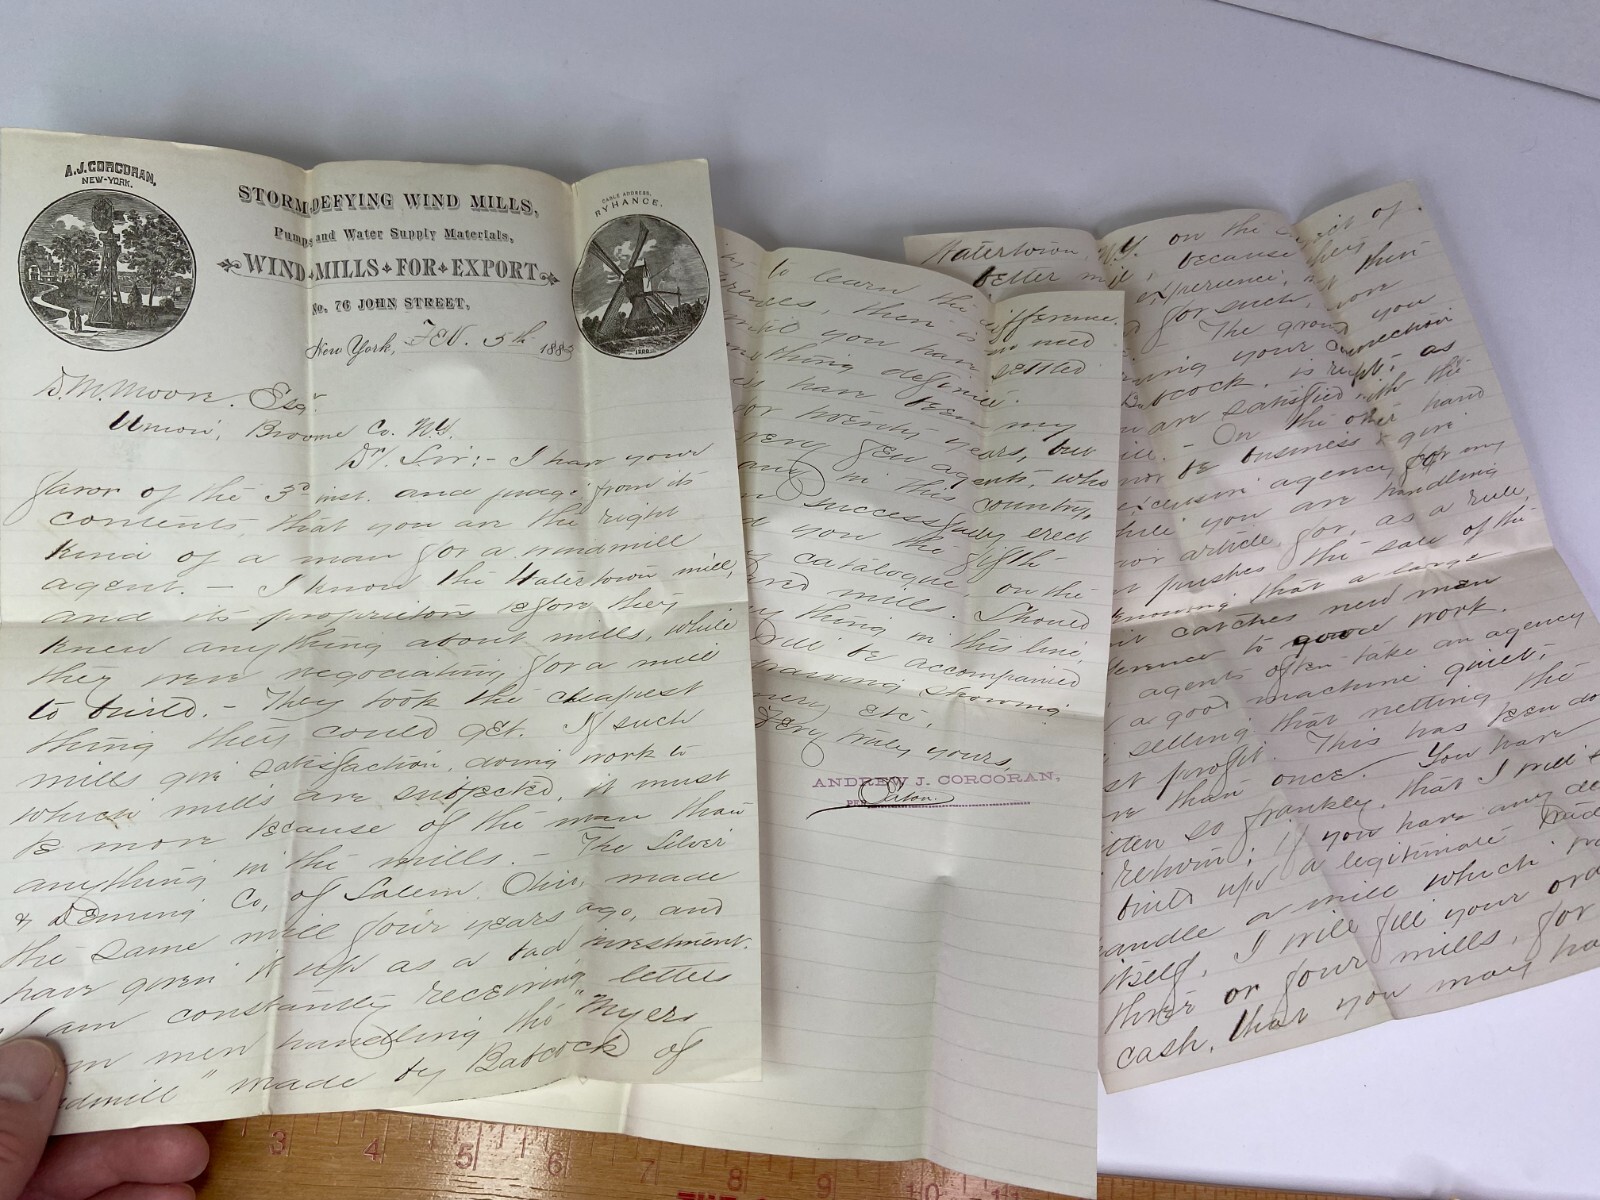 A.J. CORCORAN,
NEW-YORK.
STORM-DEFYING WIND MILLS,
Pumps and Water Supply Materials,
WIND-MILLS-FOR-EXPORT
No. 76 JOHN STREET,
CABLE ADDRESS,
RYHANCE.
New York, Feb. 5th 188
D. M. Moore. Esq.
Union, Broome Co. N.Y.
Dr. Sir:- I have your
favor of the 3d inst. and judge from its
contents, that you are the right
kind of a man for a windmill
agent. - I know the Watertown mill,
and its proprietors before they
knew anything about mills, while
they were negotiating for a mill
to build. - They took the cheapest
thing they could get. If such
mills give satisfaction, doing work to
which mills are subjected, it must
be more because of the man than
anything in the mills. - The Silver
& Deming Co, of Salem, Ohio, made
the same mill four years ago, and
have given it up as a bad investment.
I am constantly receiving letters
from men handling the "Myers
dmill" made by Babcock of
Watertown, N.Y. on the
better mill, because they
experience,
for such.
The ground you
your connection
Babcock, is right, as
are satisfied with the
ill. - On the other hand
not be business to give
exclusive agency for my
hile you are handling
article, for, as a rule,
pushes the sale of the
knowing that a large
it catches new men
erence to good work.
agents often take an agency
a good machine quiet,
selling that netting the
st profit. This has been do
re than once. - You have
tten so frankly, that I will
return; if you have any de
build up a legitimate trad
handle a mill which
itself, I will fill your ord
three or four mills, for
cash, that you may ha
to learn the difference.
then is no need
until you have settled
thing definite.
have been my
for twenty years, but
very few agents, who
in this country,
successfully erect
you the fifth
catalogue, on the
mills. Should
thing in this line,
will be accompanied
drawing showing
etc.
Very truly yours,
ANDREW J. CORCORAN,
PER Eaton.
1880
3 4 5 6 7 8 9 10 11
THE